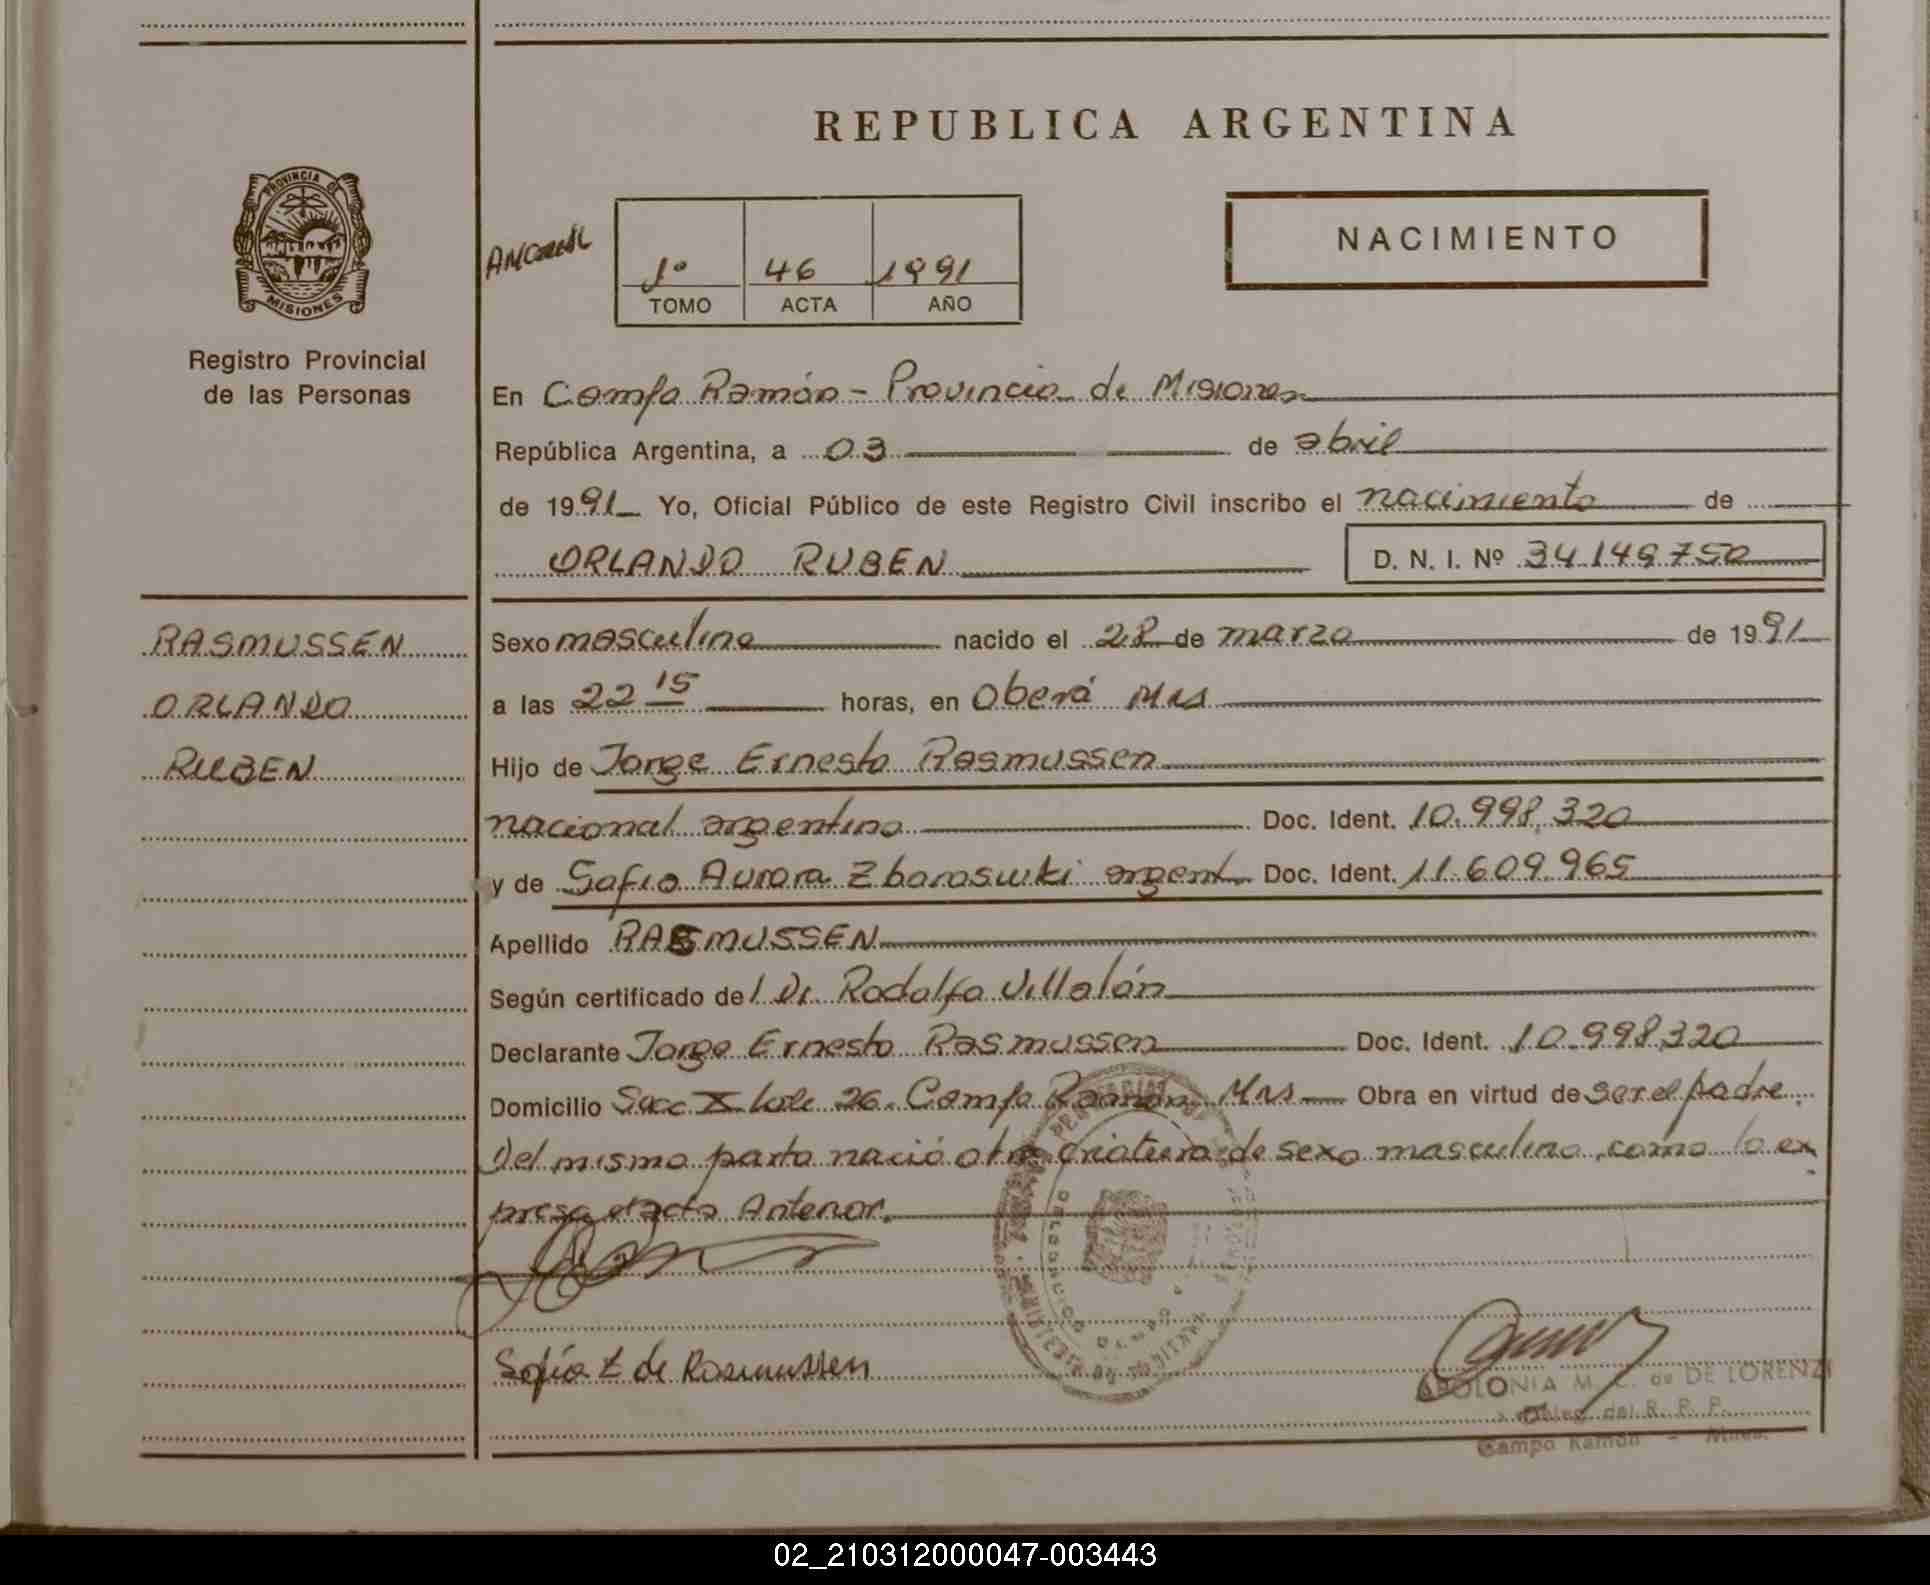 REPUBLICA ARGENTINA
PROVINCIA DE
MISIONES
Registro Provincial
de las Personas
1º 46 1991
TOMO ACTA AÑO
NACIMIENTO
En Campo Ramón - Provincia de Misiones
República Argentina, a 03 de abril
de 1991 Yo, Oficial Público de este Registro Civil inscribo el nacimiento de
ORLANDO RUBEN D. N. I. Nº 34.149.750
RASMUSSEN
ORLANDO
RUBEN
Sexo masculino nacido el 28 de marzo de 1991
a las 22 15 horas, en Oberá Mns
Hijo de Jorge Ernesto Rasmussen
nacional argentino Doc. Ident. 10.998.320
y de Sofia Aurora Zbaraswki argent Doc. Ident. 11.609.965
Apellido RASMUSSEN
Según certificado del Dr. Rodolfo Villalón
Declarante Jorge Ernesto Rasmussen Doc. Ident. 10.998.320
Domicilio Secc X Lote 26. Campo Ramón Mns Obra en virtud de ser el padre.
Del mismo parto nació otra criatura de sexo masculino, como lo ex
presa el acta Anterior.
Sofía Z de Rasmussen
APOLONIA M. C. de DE LORENZI
Deleg. del R. P. P.
Campo Ramón - Mnes.
02_210312000047-003443